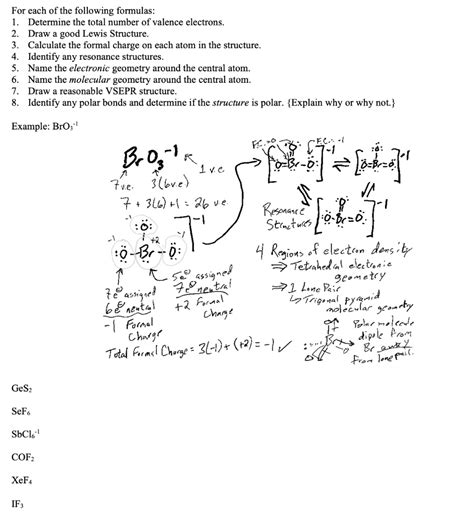 For each of the following formulas:
1. Determine the total number of valence electrons.
2. Draw a good Lewis Structure.
3. Calculate the formal charge on each atom in the structure.
4. Identify any resonance structures.
5. Name the electronic geometry around the central atom.
6. Name the molecular geometry around the central atom.
7. Draw a reasonable VSEPR structure.
8. Identify any polar bonds and determine if the structure is polar. {Explain why or why not.}
Example: BrO₃⁻¹
BrO₃⁻¹
1 v.e.
7 v.e. 3(6 v.e)
7 + 3(6) + 1 = 26 v e
:Ö:
:Ö-Br-Ö:
-1
+2
7 e⊖ assigned
6 e⊖ neutral
-1 Formal
Charge
5 e⊖ assigned
7 e⊖ neutral
+2 Formal
Charge
Total Formal Charge = 3(-1) + (+2) = -1 ✓
F.C. = 0
F.C. = -1
Resonance
Structures
4 Regions of electron density
⇒ Tetrahedral electronic
geometry
⇒ 1 Lone Pair
↳ Trigonal pyramid
molecular geometry
Polar molecule
dipole from
Br away
from lone pair.
GeS₂
SeF₆
SbCl₆⁻¹
COF₂
XeF₄
IF₃